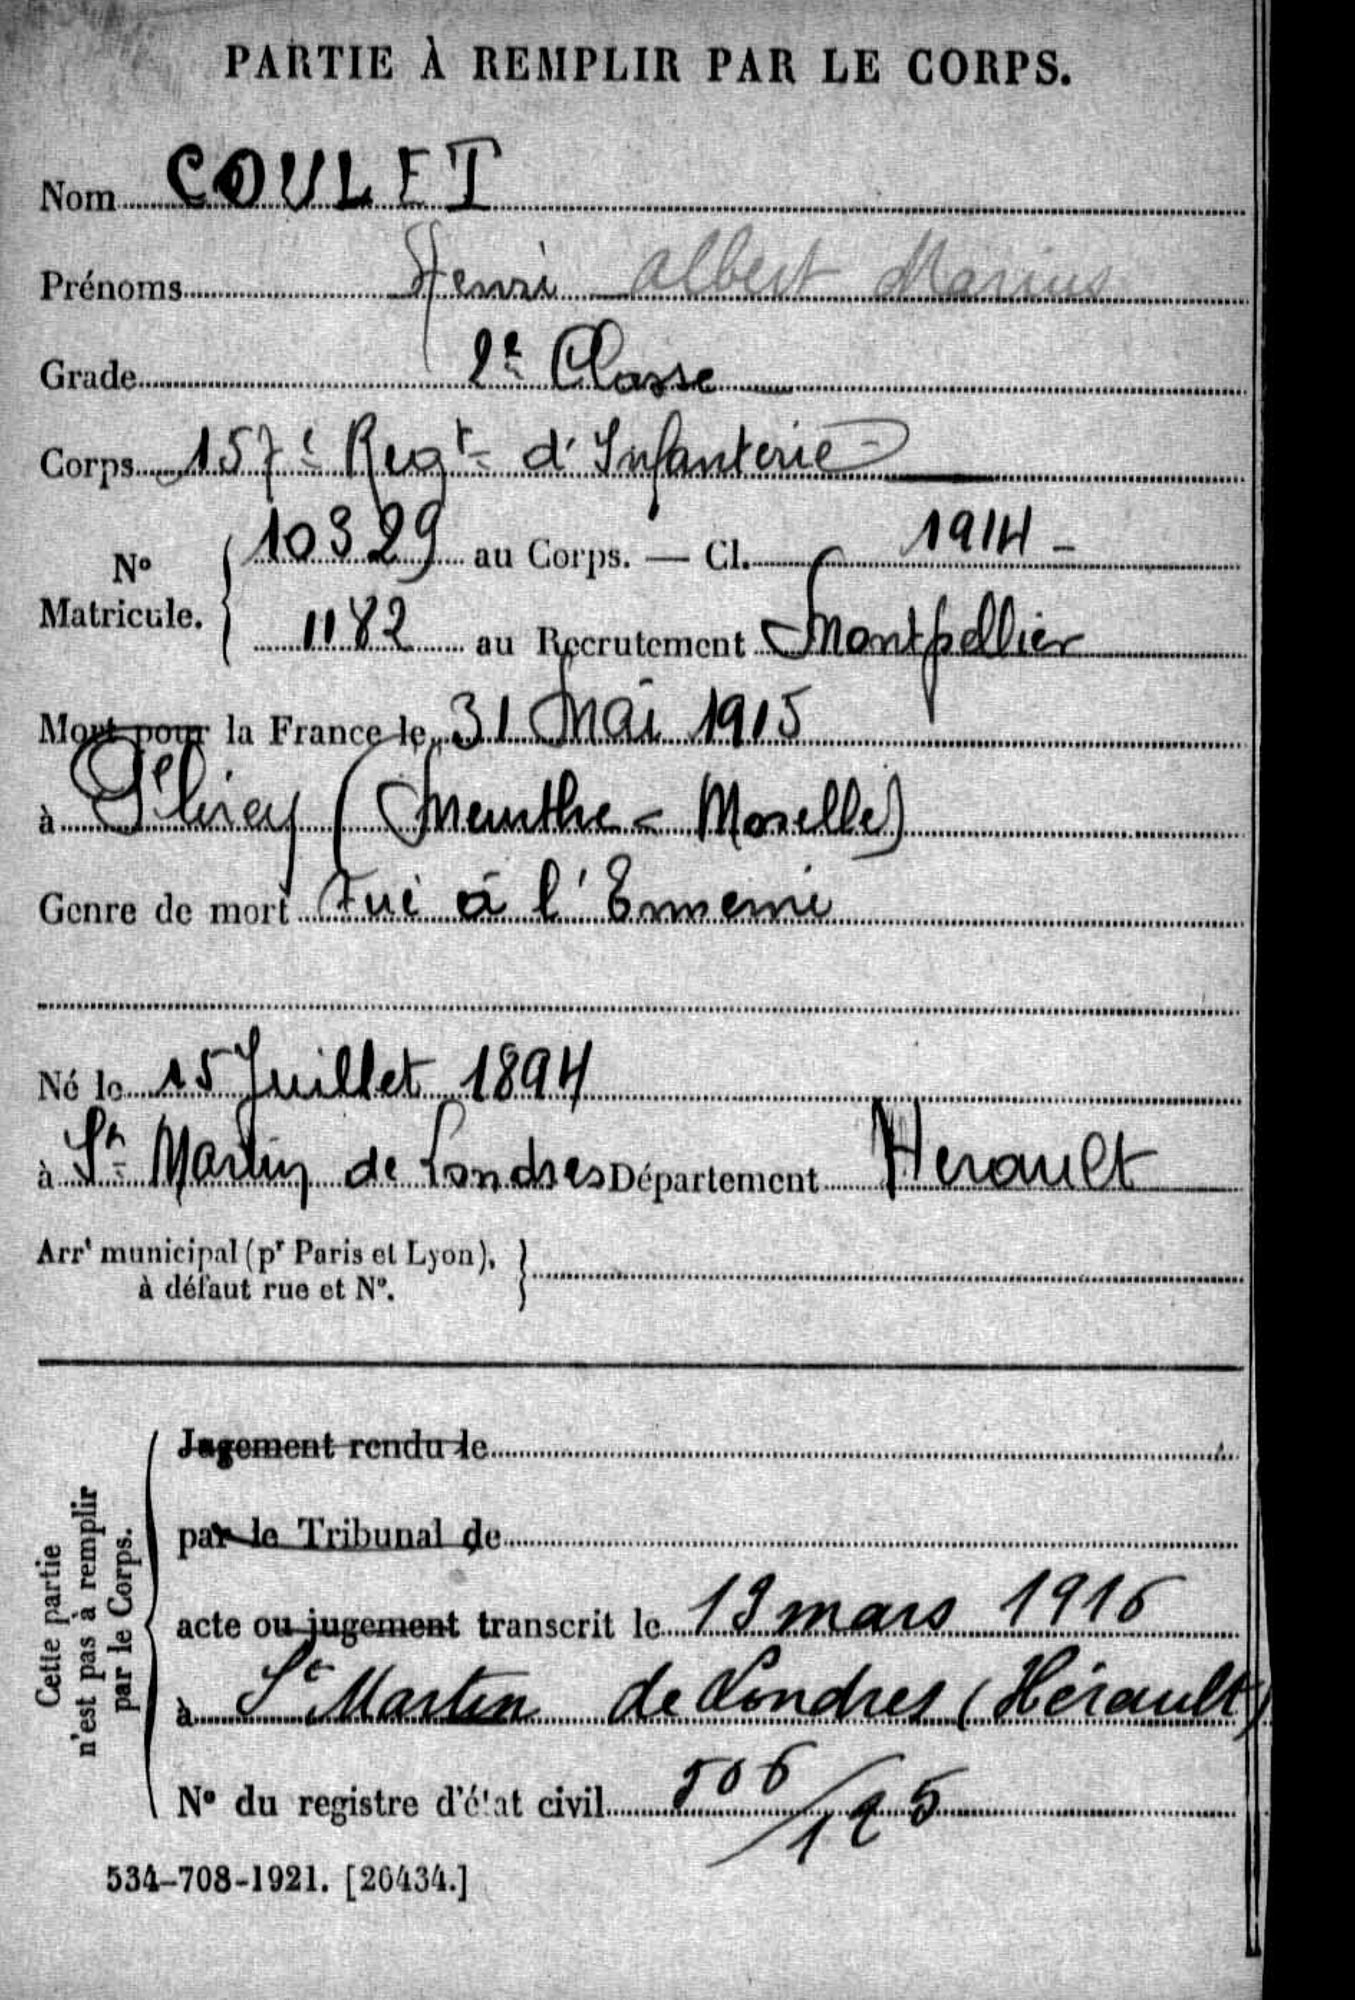 PARTIE À REMPLIR PAR LE CORPS.
Nom COULET
Prénoms Henri Albert Marius
Grade 2e Classe
Corps 157e Regt d'Infanterie
No Matricule. { 10329 au Corps. — Cl. 1914 -
1182 au Recrutement Montpellier
Mort pour la France le 31 Mai 1915
à Flirey (Meurthe - Moselle)
Genre de mort Tué à l'Ennemi
Né le 15 Juillet 1894
à St Martin de Londres Département Herault
Arrt municipal (pr Paris et Lyon), à défaut rue et No. }
Cette partie n'est pas à remplir par le Corps.
Jugement rendu le
par le Tribunal de
acte ou jugement transcrit le 19 mars 1916
à St Martin de Londres (Hérault)
No du registre d'état civil 506/125
534-708-1921. [26434.]